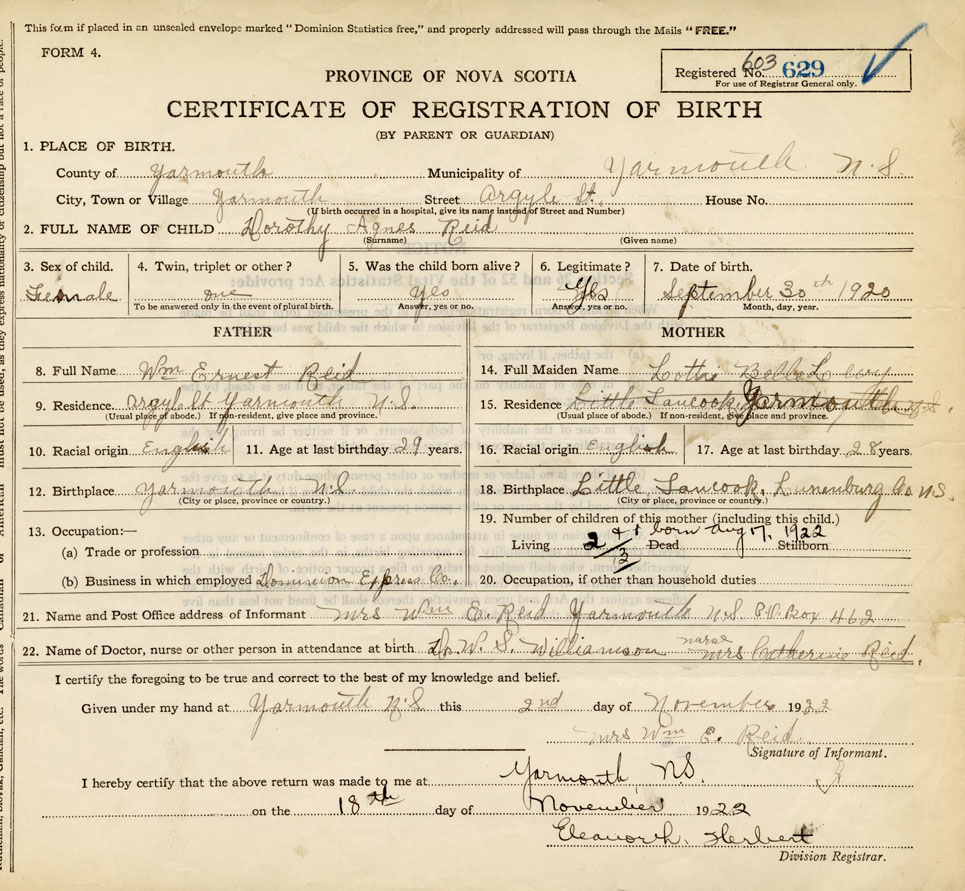 This form if placed in an unsealed envelope marked "Dominion Statistics free," and properly addressed will pass through the Mails "FREE."
FORM 4.
603
Registered No. 629
For use of Registrar General only.
PROVINCE OF NOVA SCOTIA
CERTIFICATE OF REGISTRATION OF BIRTH
(BY PARENT OR GUARDIAN)
1. PLACE OF BIRTH.
County of Yarmouth Municipality of Yarmouth N.S.
City, Town or Village Yarmouth Street Argyle St. House No.
(If birth occurred in a hospital, give its name instead of Street and Number)
2. FULL NAME OF CHILD Dorothy Agnes Reid
(Surname) (Given name)
3. Sex of child. 4. Twin, triplet or other? 5. Was the child born alive? 6. Legitimate? 7. Date of birth.
Female one Yes Yes September 30th 1920
To be answered only in the event of plural birth. Answer, yes or no. Answer, yes or no. Month, day, year.
FATHER MOTHER
8. Full Name Wm Ernest Reid 14. Full Maiden Name Lottie Belle
9. Residence Argyle St Yarmouth N.S. 15. Residence Little Tancook, Yarmouth N.S.
(Usual place of abode.) If non-resident, give place and province. (Usual place of abode.) If non-resident, give place and province.
10. Racial origin English 11. Age at last birthday 29 years. 16. Racial origin English 17. Age at last birthday 28 years.
12. Birthplace Yarmouth N.S. 18. Birthplace Little Tancook, Lunenburg Co. N.S.
(City or place, province or country.) (City or place, province or country.)
13. Occupation:— 19. Number of children of this mother (including this child.)
(a) Trade or profession Living 2 + 1 born Aug 17, 1922 Dead Stillborn
3
(b) Business in which employed Dominion Express Co. 20. Occupation, if other than household duties
21. Name and Post Office address of Informant Mrs Wm E. Reid Yarmouth N.S P.O. Box 462
22. Name of Doctor, nurse or other person in attendance at birth Dr. W. S. Williamson nurse Mrs Catherine Reid.
I certify the foregoing to be true and correct to the best of my knowledge and belief.
Given under my hand at Yarmouth N.S this 2nd day of November 1922
Mrs Wm E. Reid
Signature of Informant.
I hereby certify that the above return was made to me at Yarmouth N.S.
on the 18th day of November 1922
Eleanor H. Herbert
Division Registrar.